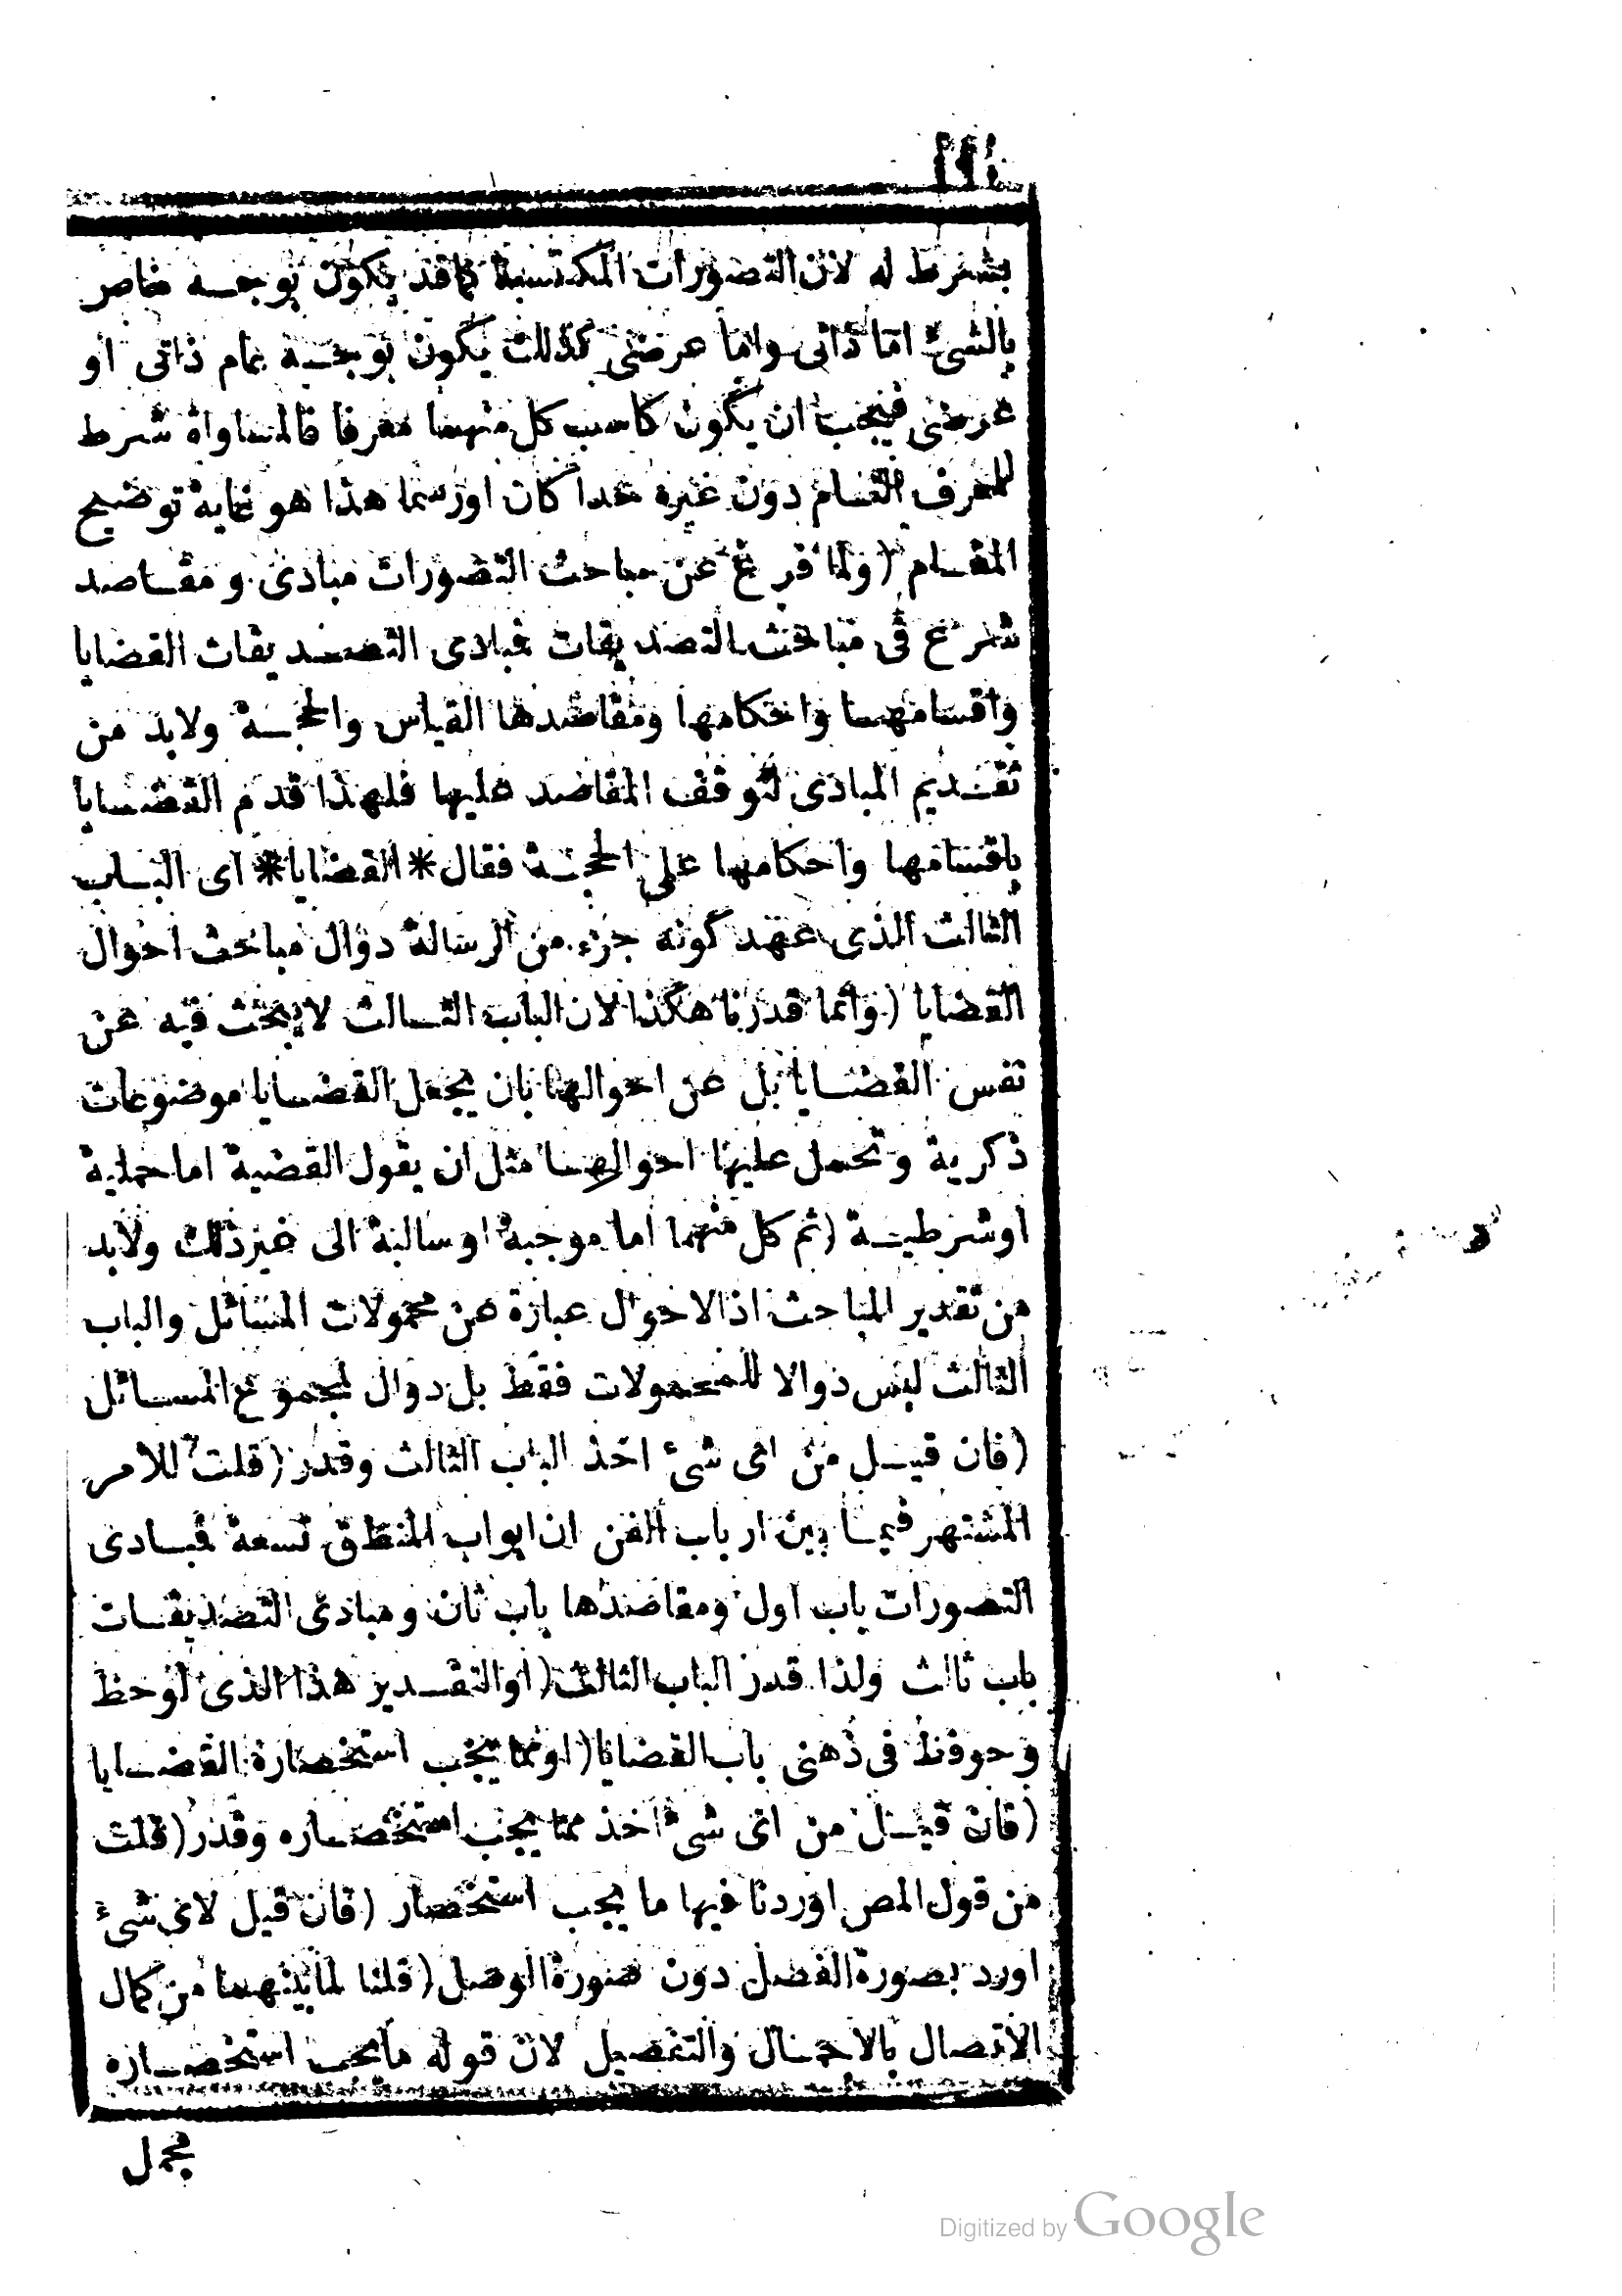 بشرط له لان التصورات المكتسبة كما قد يكون بوجه خاص
بالشئ اما ذاتى واما عرضى كذلك يكون بوجه عام ذاتى او
عرضى فيجب ان يكون كاسب كل منهما معرفا فالمساواة شرط
للمعرف التام دون غيره حدا كان اورسما هذا هو غاية توضيح
المقام (ولما فرغ عن مباحث التصورات مبادى ومقاصد
شرع فى مباحث التصديقات فبادى التصديقات القضايا
واقسامهما واحكامها ومقاصدها القياس والحجة ولابد من
تقديم المبادى لتوقف المقاصد عليها فلهذا قدم القضايا
باقسامها واحكامها على الحجة فقال * القضايا * اى الباب
الثالث الذى عهد كونه جزء من الرسالة دوال مباحث احوال
القضايا (وانما قدرنا هكذا لان الباب الثالث لايبحث فيه عن
نفس القضايا بل عن احوالها بان يجعل القضايا موضوعات
ذكرية وتحمل عليها احوالها مثل ان يقول القضية اما حملية
اوشرطية (ثم كل منهما اما موجبة او سالبة الى غيرذلك ولابد
من تقدير المباحث اذالاحوال عبارة عن محمولات المسائل والباب
الثالث ليس ذوالا للمحمولات فقط بل دوال لمجموع المسائل
(فان قيل من اى شئ اخذ الباب الثالث وقدر (قلت للامر
المشتهر فيما بين ارباب الفن ان ابواب المنطق تسعة فبادى
التصورات باب اول ومقاصدها باب ثان ومبادى التصديقات
باب ثالث ولذا قدر الباب الثالث (اوالتقدير هذا الذى لوحظ
وحوفظ فى ذهنى باب القضايا (اومما يجب استحضاره القضايا
(فان قيل من اى شئ اخذ مما يجب استحضاره وقدر (قلت
من قول المص اوردنا فيها ما يجب استحضار (فان قيل لاى شئ
اورد بصورة الفصل دون صورة الوصل (قلنا لما بينهما من كمال
الاتصال بالاجمال والتفصيل لان قوله مايجب استحضاره
مجمل
Digitized by Google